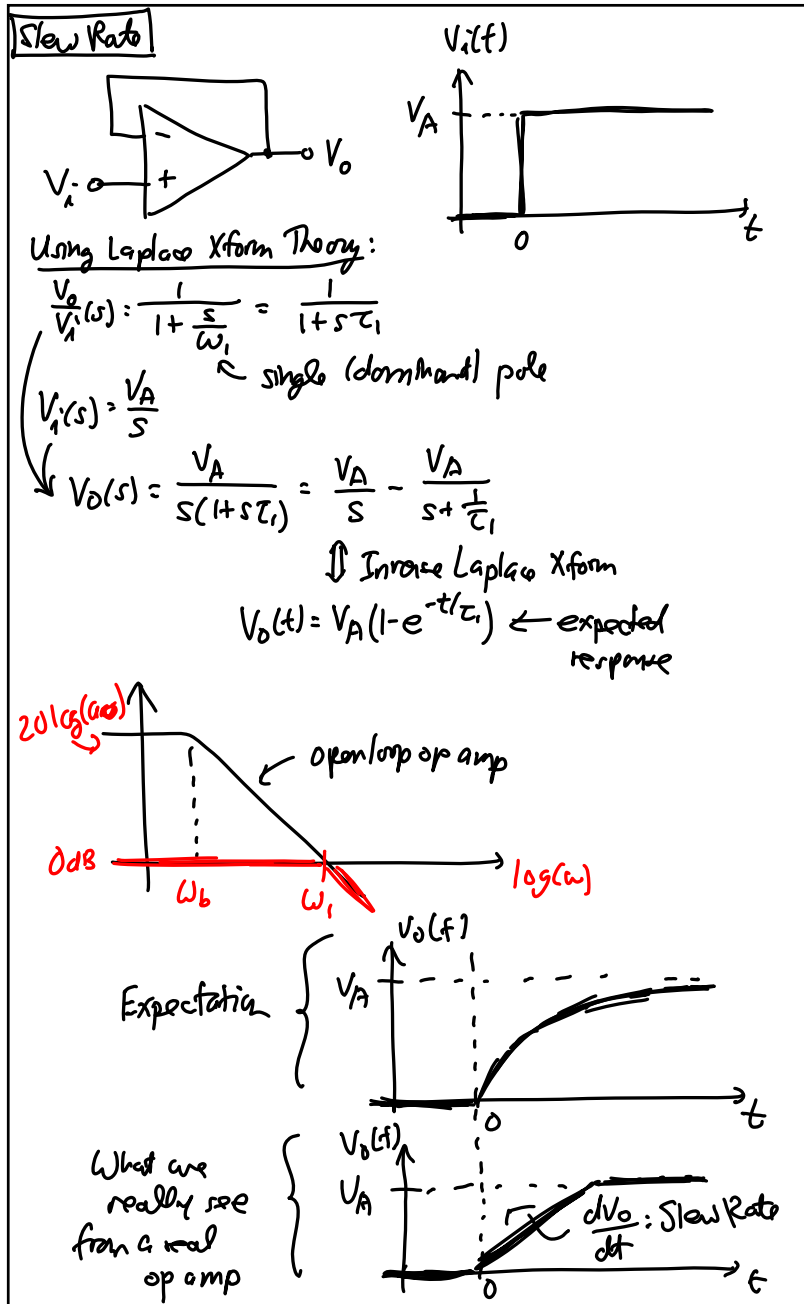 Slew Rate
Vi(t)
VA
t
0
Vi
-
+
Vo
Using Laplace Xform Theory:
Vo/Vi(s) = 1/(1 + s/ω1) = 1/(1 + sτ1)
single (dominant) pole
Vi(s) = VA/s
Vo(s) = VA/(s(1+sτ1)) = VA/s - VA/(s + 1/τ1)
⇕ Inverse Laplace Xform
Vo(t) = VA(1-e^(-t/τ1)) ← expected
response
20log(a0)
open loop op amp
0dB
ωb
ω1
log(ω)
Vo(t)
Expectation
VA
0
t
What we
really see
from a real
op amp
Vo(t)
VA
dVo/dt : Slew Rate
0
t